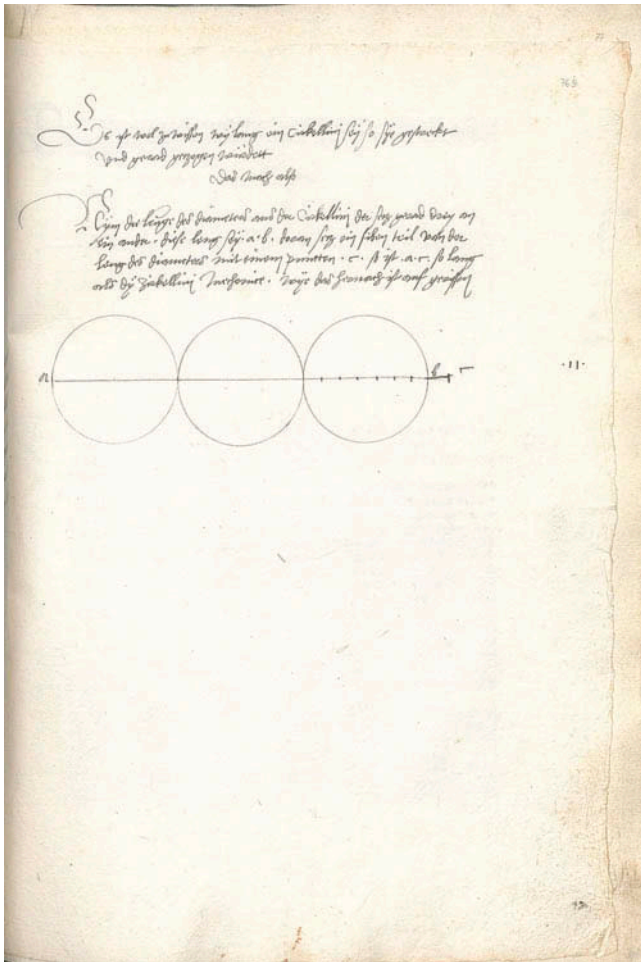 Es ist wol zu wissen wy lang ein Cirkellini sey so sye gestrekt
und gerad gezogen wurdett
Das mach also
Nym die lenge des diameters aus der Cirkellini der secz gerad drey an
ein ander · dise leng sey · a · b · daran secz ein siben teil von der
leng des diameters mit einem puncten · c · so ist · a · c · so lang
als dy zirkellini mechanice · wye das hernoch ist auf gerissen
a
b
c
· 11 ·